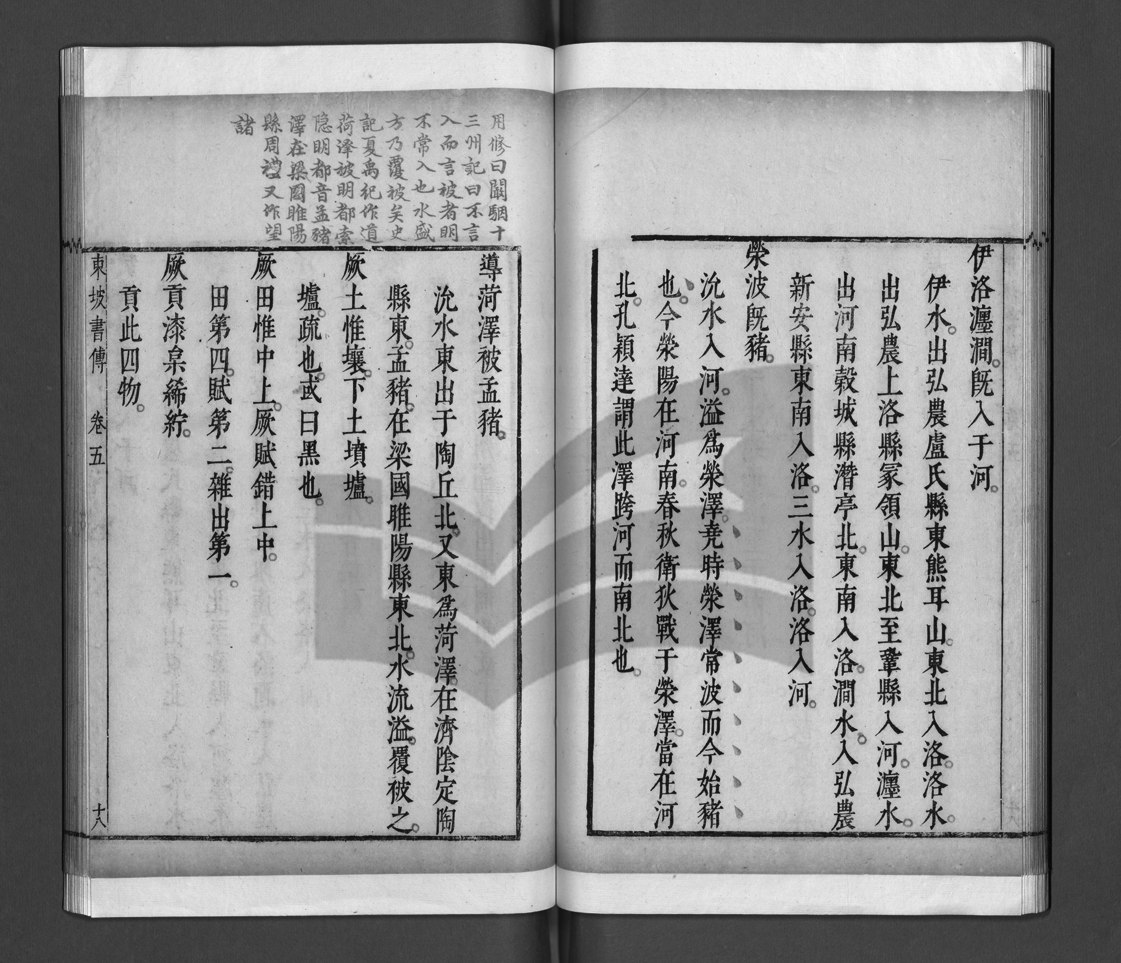 伊洛瀍澗。既入于河。
伊水。出弘農盧氏縣東熊耳山。東北入洛。洛水。
出弘農上洛縣冢領山。東北至鞏縣入河。瀍水。
出河南穀城縣潛亭北。東南入洛。澗水。入弘農
新安縣東南入洛。三水入洛。洛入河。
滎波既豬。
沇水入河。溢為滎澤。堯時滎澤常波而今始豬
也。今滎陽在河南。春秋衛狄戰于滎澤。當在河
北。孔穎達謂此澤跨河而南北也。
用修曰闞駰十
三州記曰不言
入而言被者明
不常入也水盛
方乃覆坡矣史
記夏禹紀作道
荷澤被明都索
隱明都音孟豬
澤在梁國睢陽
縣周禮又作望
諸
導菏澤被孟豬。
沇水東出于陶丘北。又東為菏澤。在濟陰定陶
縣東。孟豬。在梁國睢陽縣東北。水流溢。覆被之。
厥土惟壤。下土墳壚。
壚。疏也。或曰黑也。
厥田惟中上。厥賦錯上中。
田第四。賦第二。雜出第一。
厥貢漆枲絺紵。
貢此四物。
東坡書傳 卷五 十八